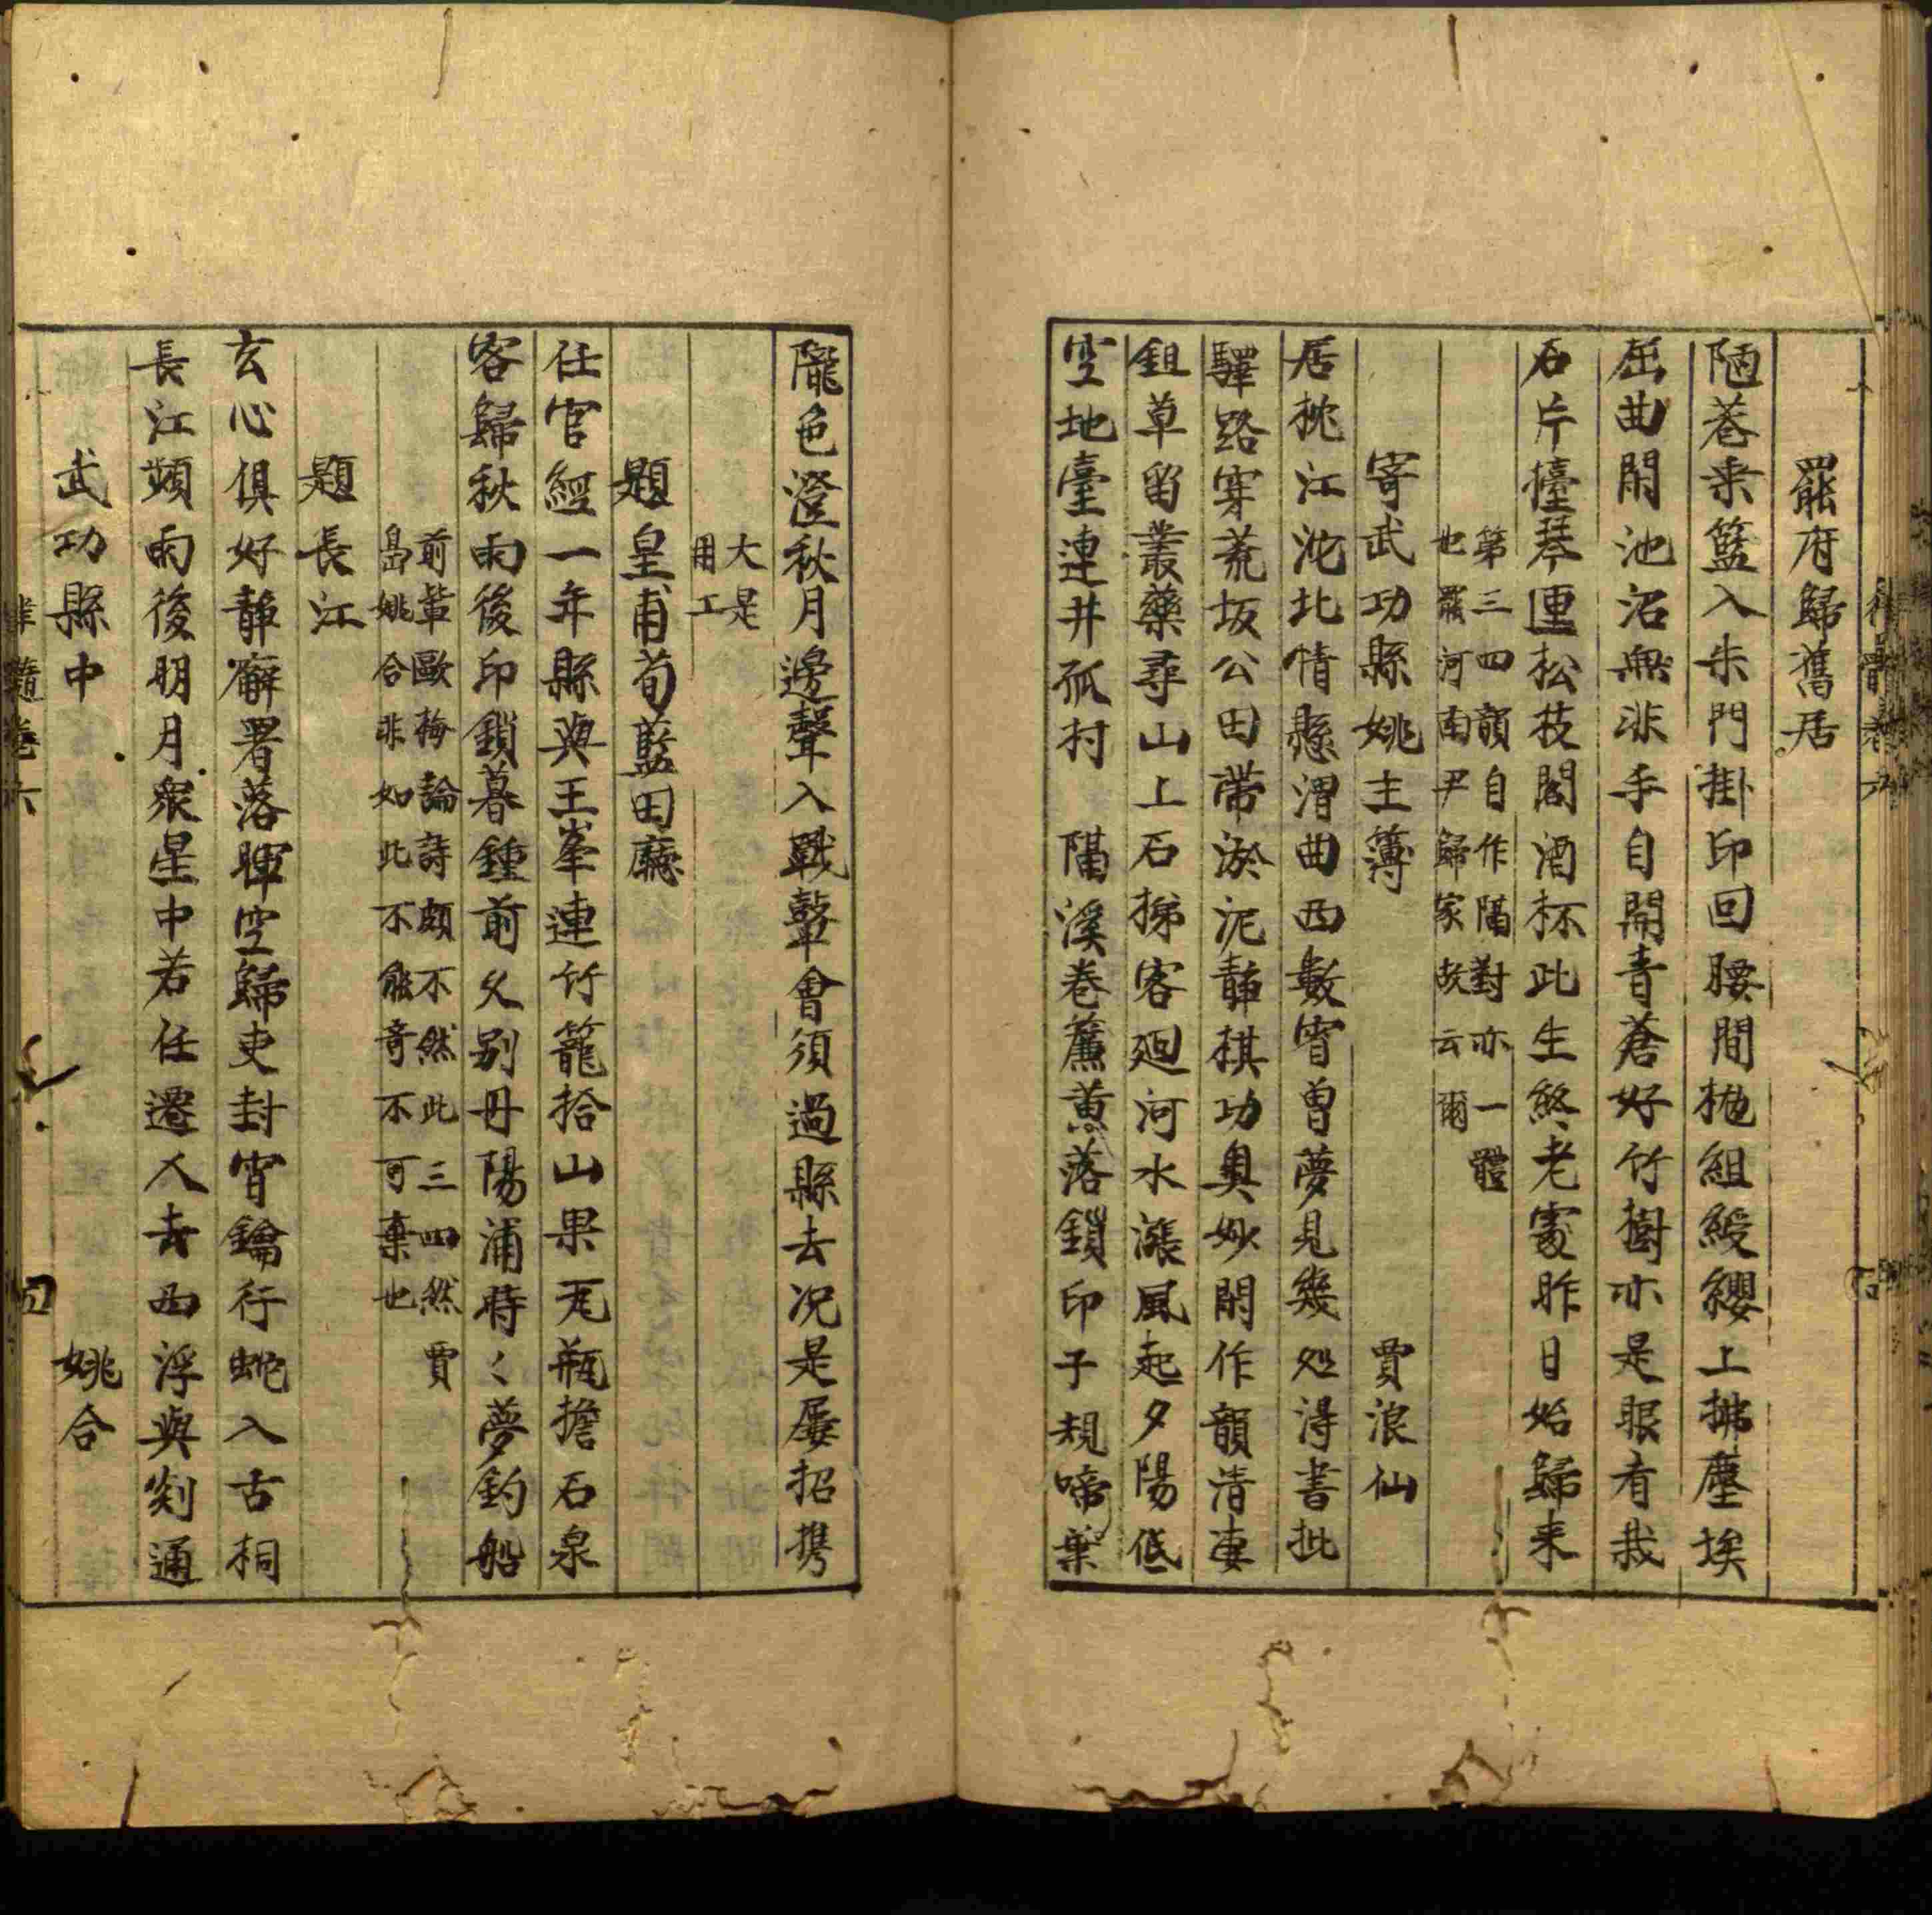 罷府歸舊居
陋巷来籃入朱門掛印回腰間抛組綬纓上拂塵埃
屈曲閑池沼無非手自開青蒼好竹樹亦是眼看栽
石片擡琴匣松枝閣酒杯此生終老處昨日始歸来
第三四韻自作隔對亦一體
也罷河南尹歸家故云爾
寄武功縣姚主簿 賈浪仙
居枕江沱北情懸渭曲西數宵曽夢見幾処淂書批
驛路穿荒坂公田帶淤泥静棋功奥妙閑作韻清凄
鉏草留叢藥尋山上石梯客廻河水漲風起夕陽低
空地臺連井孤村 隔溪卷簾黄落鎖印子規啼葉
隴色澄秋月邊聲入戰鼙會須過縣去况是屡招携
大是
用工
題皇甫荀藍田廳
任官經一年縣與王峯連竹籠拾山果瓦瓶擔石泉
客歸秋雨後印鎖暮鍾前久别丹陽浦時〻夢釣船
前輩歐梅論詩頗不然此三四然賈
島姚合非如此不能奇不可棄也
題長江
玄心俱好静廨署落暉空歸吏封宵鑰行蛇入古桐
長江頻雨後明月衆星中若任遷人去西浮與剡通
武功縣中 姚合
髓卷六